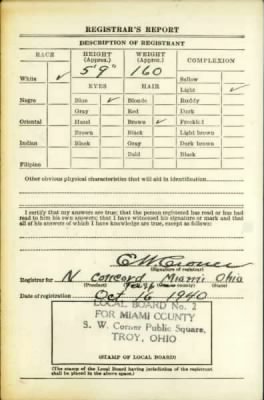 REGISTRAR'S REPORT
DESCRIPTION OF REGISTRANT
RACE HEIGHT (Approx.) WEIGHT (Approx.) COMPLEXION
White ✓ 5' 9" 160 Sallow
EYES HAIR Light ✓
Negro Blue ✓ Blonde Ruddy
Gray Red Dark
Oriental Hazel Brown ✓ Freckled
Brown Black Light brown
Indian Black Gray Dark brown
Bald Black
Filipino
Other obvious physical characteristics that will aid in identification
I certify that my answers are true; that the person registered has read or has had
read to him his own answers; that I have witnessed his signature or mark and that
all of his answers of which I have knowledge are true, except as follows:
(Signature of registrar)
Registrar for N Concord Miami Ohio
(Precinct) (State)
Date of registration Oct 16 1940
LOCAL BOARD No. 2
FOR MIAMI COUNTY
S. W. Corner Public Square,
TROY, OHIO
(STAMP OF LOCAL BOARD)
(The stamp of the Local Board having jurisdiction of the registrant
shall be placed in the above space.)